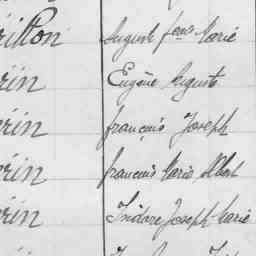 ritton August fois Marie
rin Eugène Auguste
rin françois Joseph
rin françois Marie Albert
rin Isidore Joseph Marie